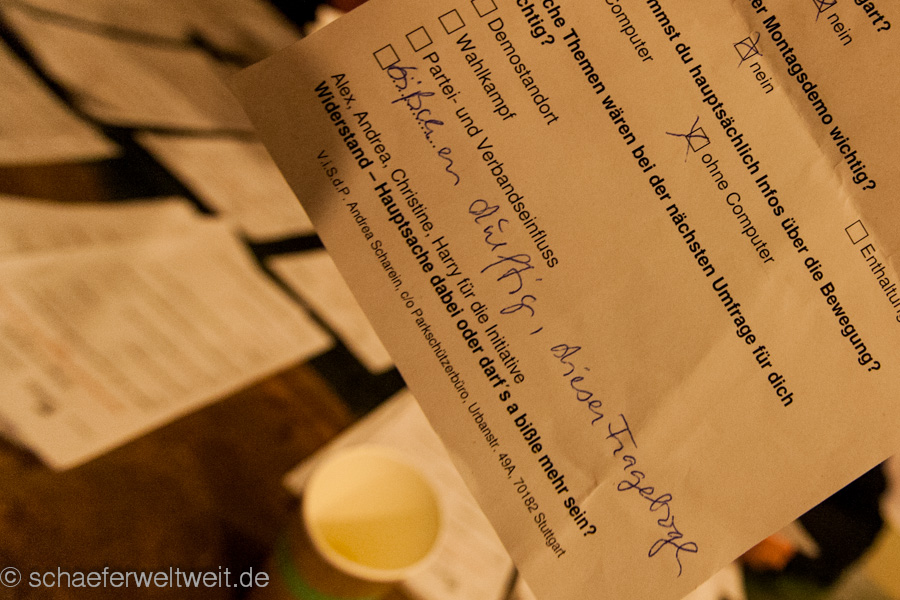 gart?
☒ nein
er Montagsdemo wichtig?
☒ nein
☐ Enthaltung
mmst du hauptsächlich Infos über die Bewegung?
Computer
☒ ohne Computer
che Themen wären bei der nächsten Umfrage für dich
chtig?
☐ Demostandort
☐ Wahlkampf
☐ Partei- und Verbandseinfluss
☐ bißchen dürftig, dieser Frageboge
Alex, Andrea, Christine, Harry für die Initiative
Widerstand – Hauptsache dabei oder darf's a bißle mehr sein?
V.i.S.d.P. Andrea Scharein, c/o Parkschützerbüro, Urbanstr. 49A, 70182 Stuttgart
© schaeferweltweit.de